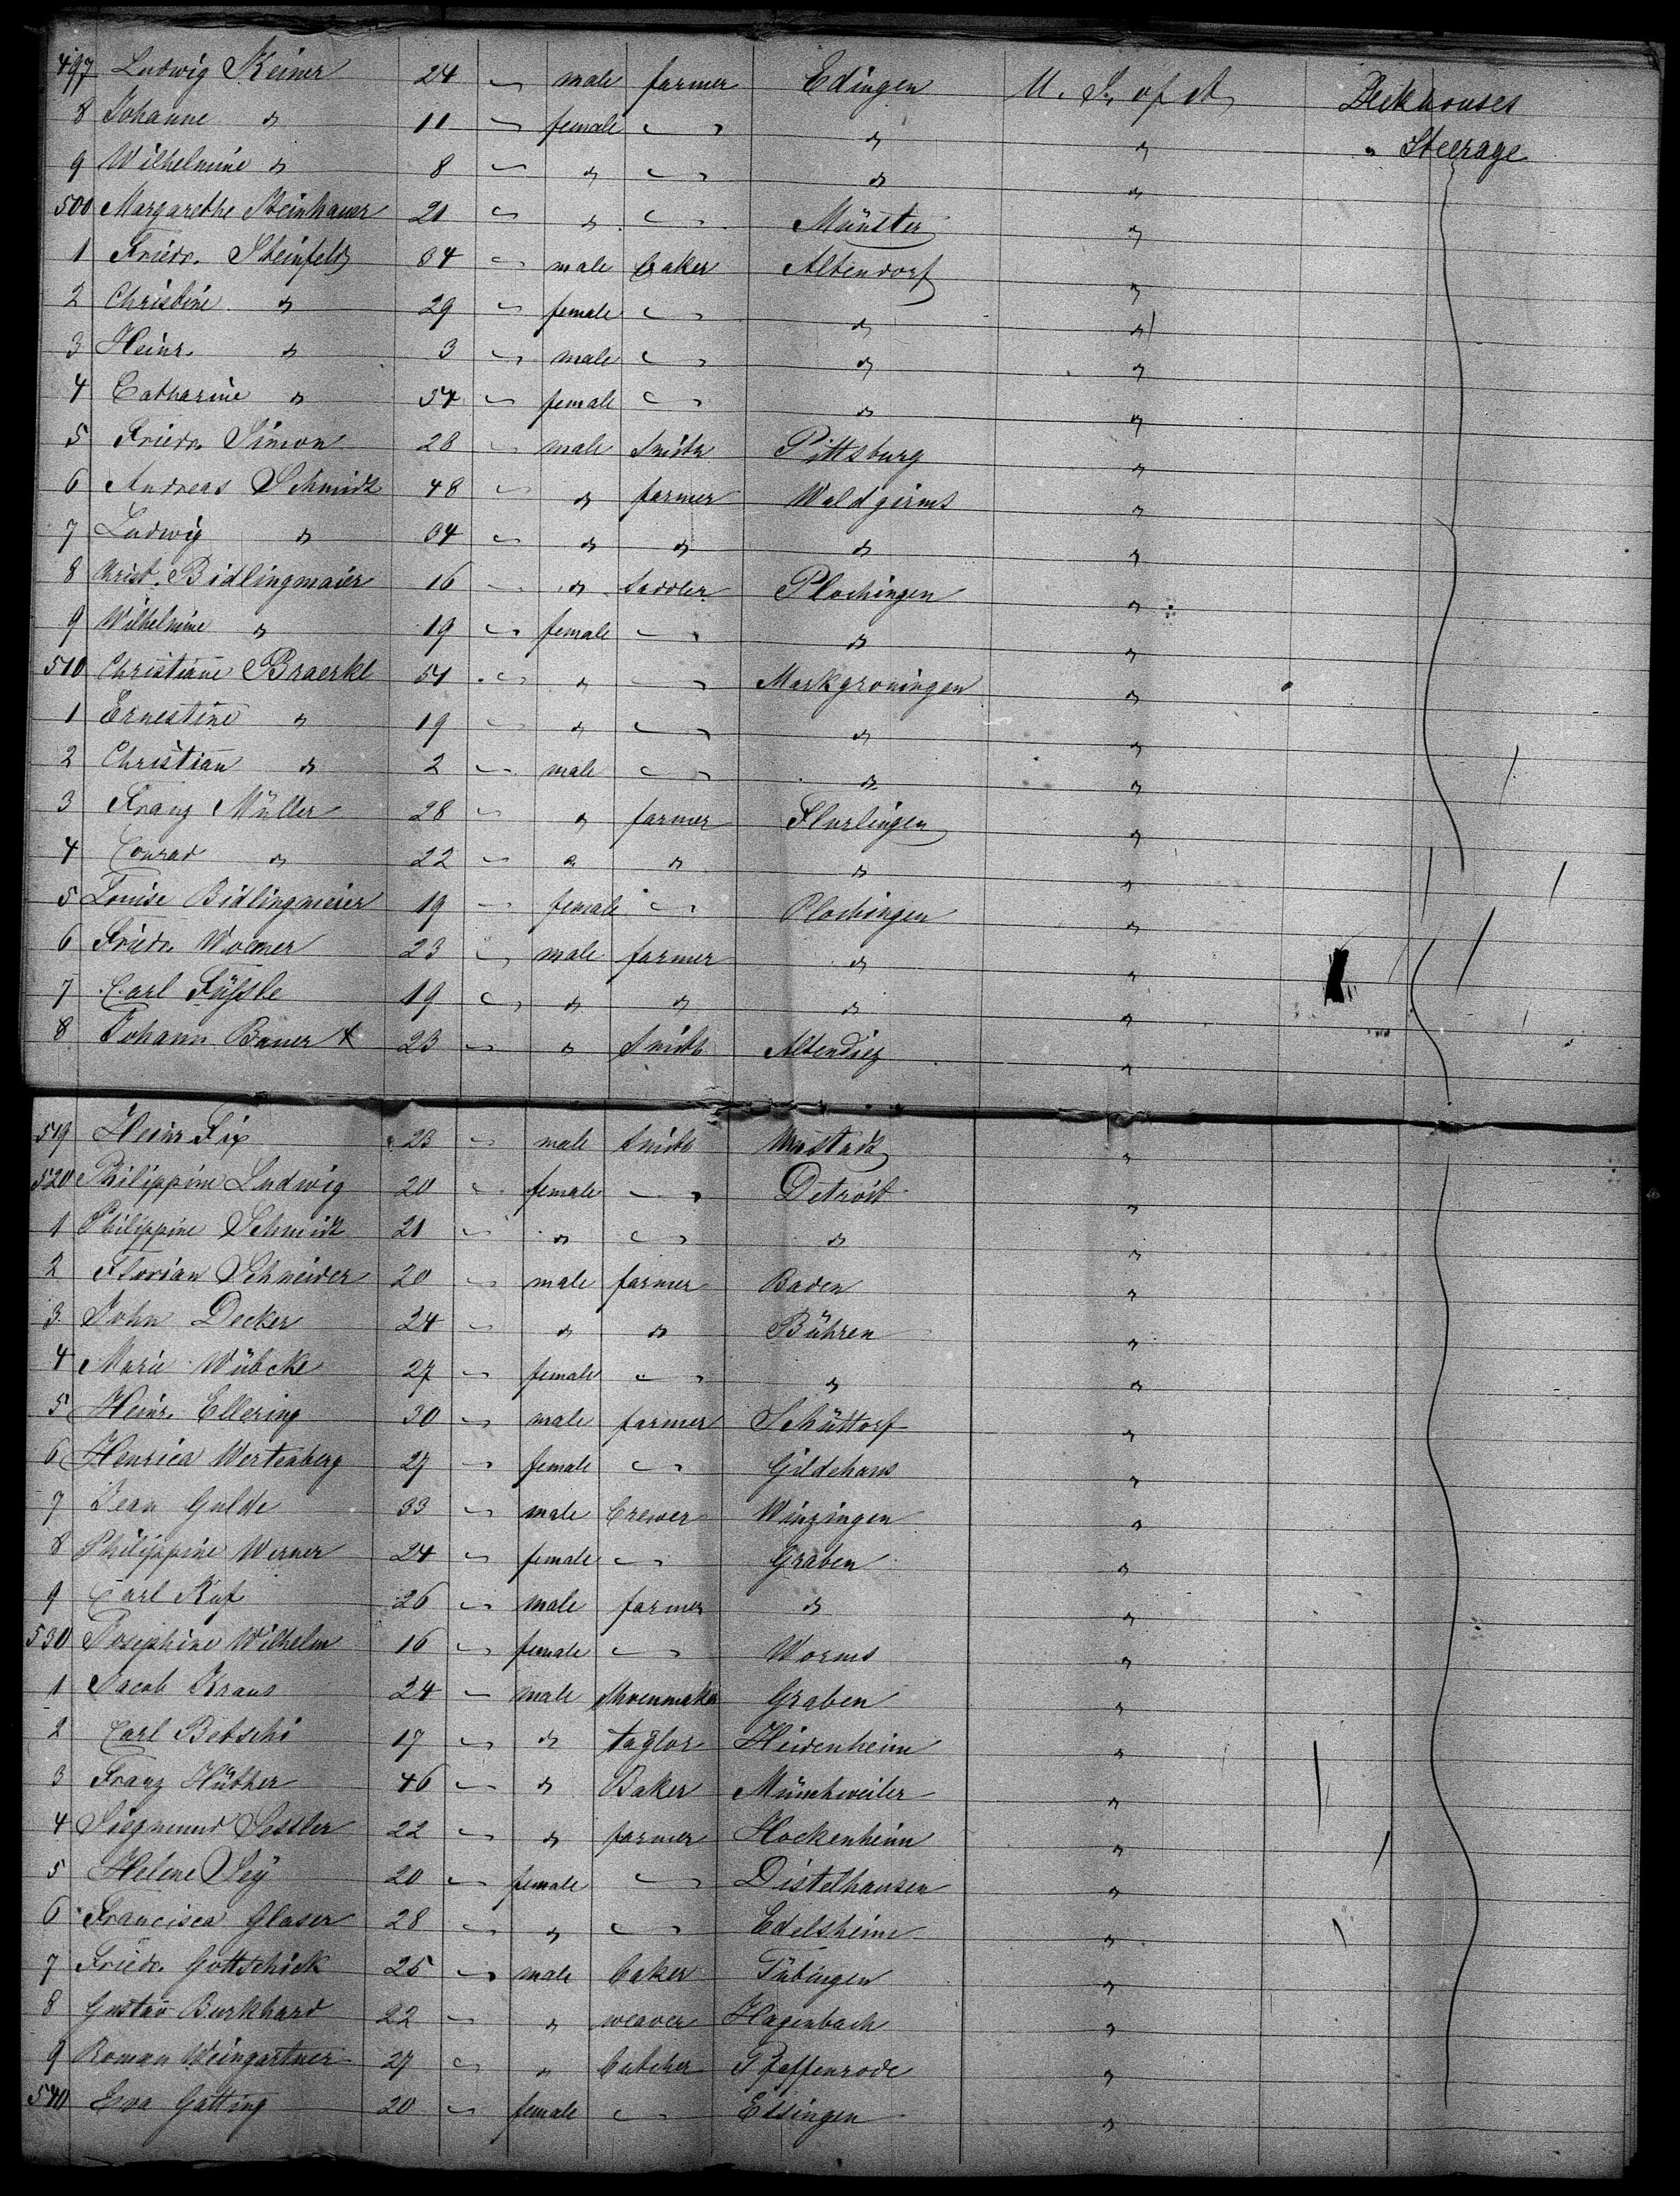 497 Ludwig Keiner 24 ~ male farmer Edingen U. S. of A. Deckhouses
8 Johanne " 11 ~ female ~ " " " Steerage
9 Wilhelmine " 8 ~ " ~ " "
500 Margarethe Steinhauer 21 ~ " ~ Münster "
1 Friedr. Steinfeld 34 ~ male baker Altendorf "
2 Christine " 29 ~ female ~ " "
3 Heinr. " 3 ~ male ~ " "
4 Catharine " 54 ~ female ~ " "
5 Friedr. Simon 28 ~ male Smith Pittsburg "
6 Andreas Schmidt 48 ~ " farmer Waldgirms "
7 Ludwig " 34 ~ " " " "
8 Christ. Bidlingmaier 16 ~ " Saddler Plochingen "
9 Wilhelmine " 19 ~ female ~ " "
510 Christiane Braerkle 51 ~ " ~ Markgroningen "
1 Ernestine " 19 ~ " ~ " "
2 Christian " 2 ~ male ~ " "
3 Franz Müller 28 ~ " farmer Flurlingen "
4 Conrad " 22 ~ " " " "
5 Louise Bidlingmeier 19 ~ female ~ Plochingen "
6 Friedr. Woerner 23 ~ male farmer " "
7 Carl Füssle 19 ~ " " " "
8 Johann Bauer x 23 ~ " Smith Altendiez "
519 Heinr Fix 23 ~ male Smith "
520 Philippine Ludwig 20 ~ female ~ Detroit "
1 Philippine Schmidt 21 ~ " ~ " "
2 Florian Schneider 20 ~ male farmer Baden "
3 John Decker 24 ~ " " Bühren "
4 Marie Wübcke 27 ~ female ~ " "
5 Heinr. Ellering 30 ~ male farmer Schüttorf "
6 Henrica Wertenberg 27 ~ female ~ Gildehaus "
7 Jean Gulde 33 ~ male brewer Winzingen "
8 Philippine Werner 24 ~ female ~ Graben "
9 Carl Ruf 26 ~ male farmer " "
530 Josephine Wilhelm 16 ~ female ~ Worms "
1 Jacob Kraus 24 ~ male Shoenmaker Graben "
2 Carl Betschi 17 ~ " taylor Heidenheim "
3 Franz Hübher 46 ~ " Baker Münchweiler "
4 Siegmund Sessler 22 ~ " farmer Hockenheim "
5 Helene Sey 20 ~ female ~ Distelhausen "
6 Francisca Glaser 28 ~ " ~ Edelsheim "
7 Friedr. Gottschick 25 ~ male baker Tübingen "
8 Gustav Burkhard 22 ~ " weaver Hagenbach "
9 Roman Weingartner 27 ~ " butcher Pfaffenrode "
540 Eva Gatting 20 ~ female ~ Essingen "